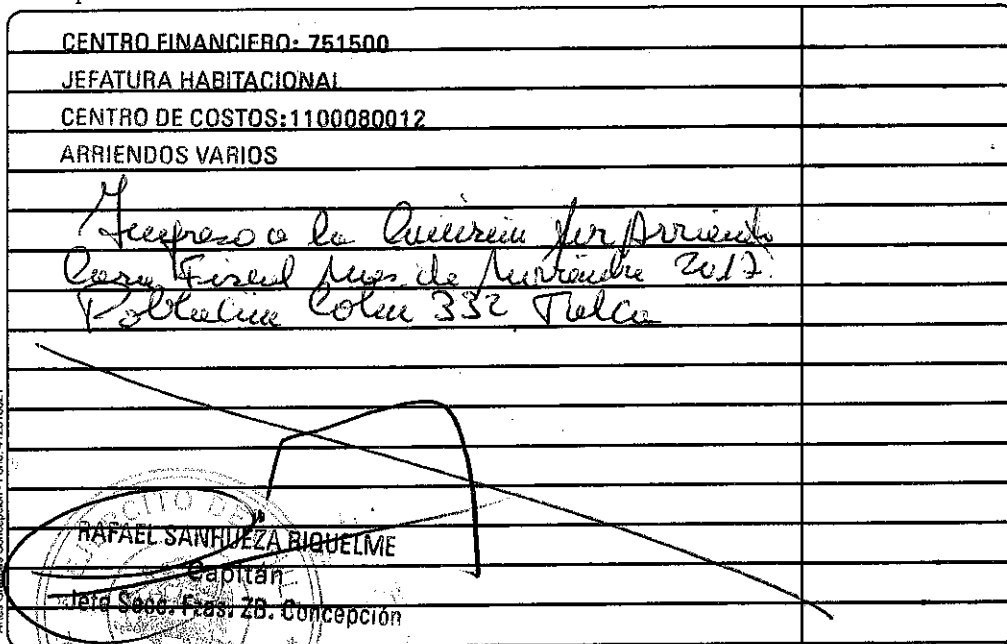 CENTRO FINANCIERO: 751500
JEFATURA HABITACIONAL
CENTRO DE COSTOS:1100080012
ARRIENDOS VARIOS
Ingreso a la por Arriendo
Casa Fiscal Mes de Noviembre 2017.
Población Colin 332 Talca
EJÉRCITO DE
RAFAEL SANHUEZA RIQUELME
Capitán
Jefe Secc. Fzas. ZB. Concepción